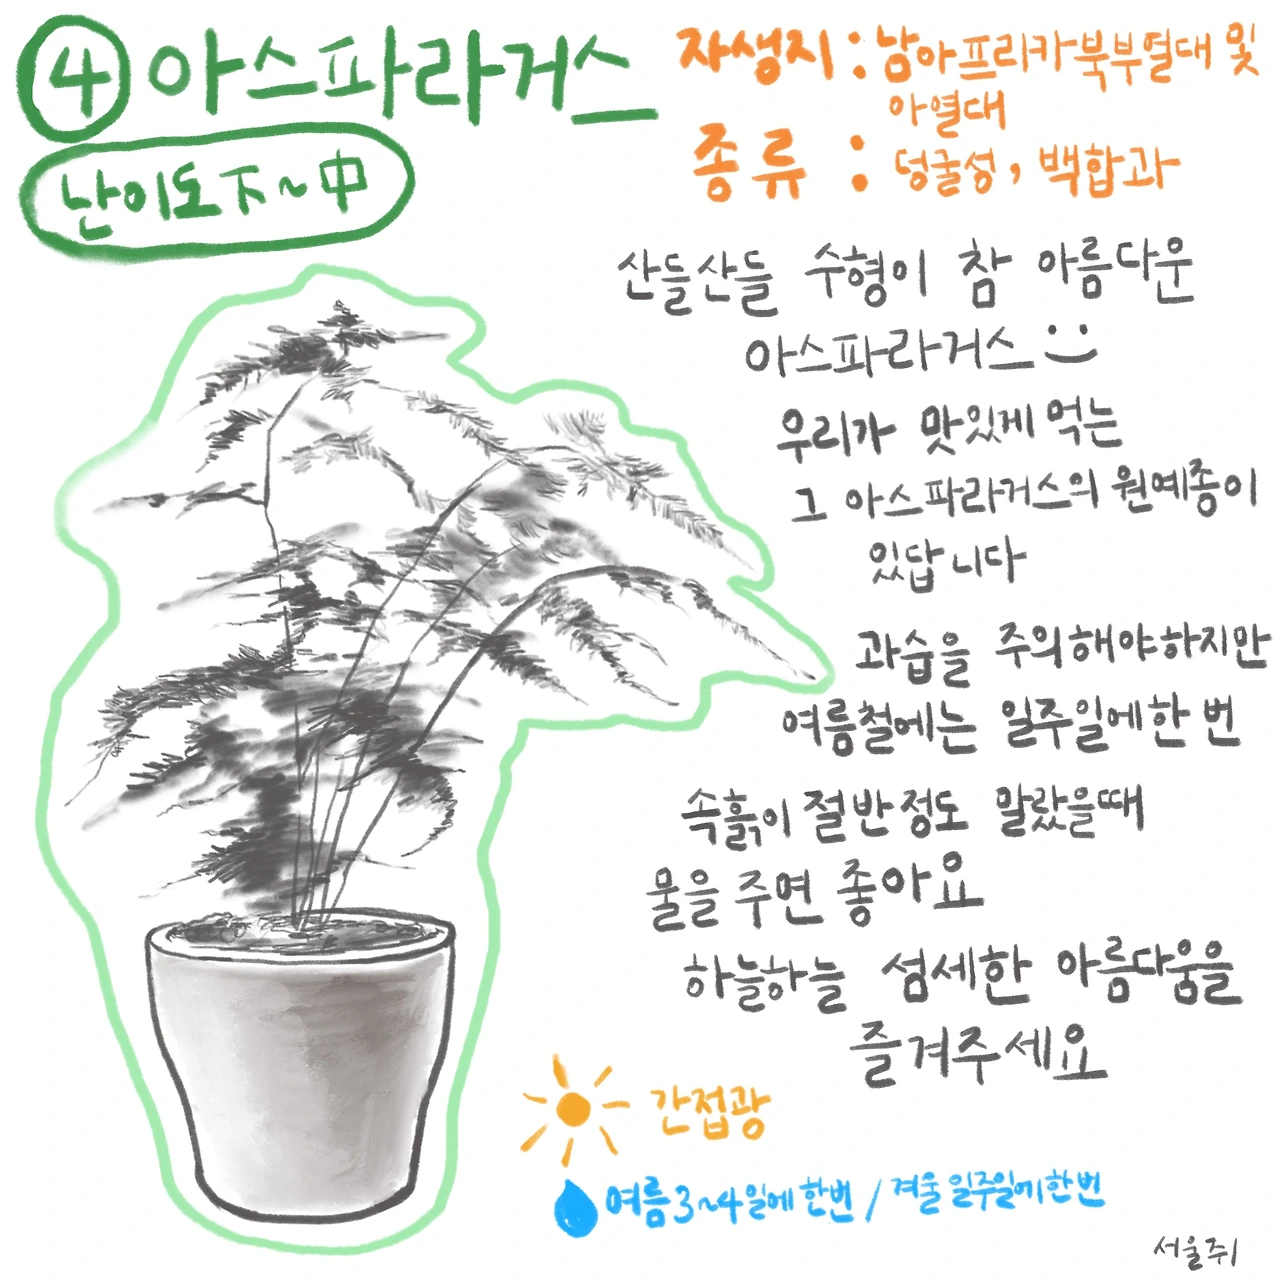 ④ 아스파라거스
난이도 下~中
자생지 : 남아프리카북부열대 및
아열대
종류 : 덩굴성, 백합과
산들산들 수형이 참 아름다운
아스파라거스
우리가 맛있게 먹는
그 아스파라거스의 원예종이
있답니다
과습을 주의해야하지만
여름철에는 일주일에한 번
속흙이 절반정도 말랐을때
물을 주면 좋아요
하늘하늘 섬세한 아름다움을
즐겨주세요
간접광
여름 3~4일에 한번 / 겨울 일주일에한번
서울쥐